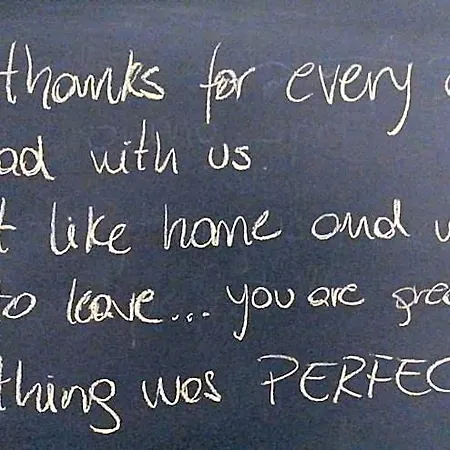 thanks for every
ad with us
t like home and w
to leave... you are grea
thing was PERFEC